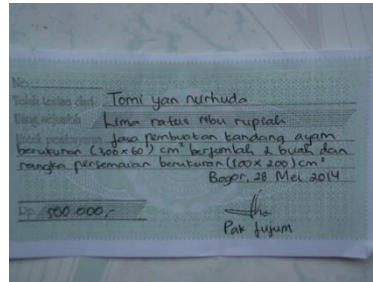 No.
Telah terima dari Tomi yan nurhuda
Uang sejumlah Lima ratus ribu rupiah
Untuk pembayaran Jasa pembuatan kandang ayam
berukuran (300x60) cm² berjumlah 2 buah dan
rangka persemaian berukuran (100 x 200) cm²
Bogor, 28 Mei 2014
Rp. 500.000,-
Pak Jujum